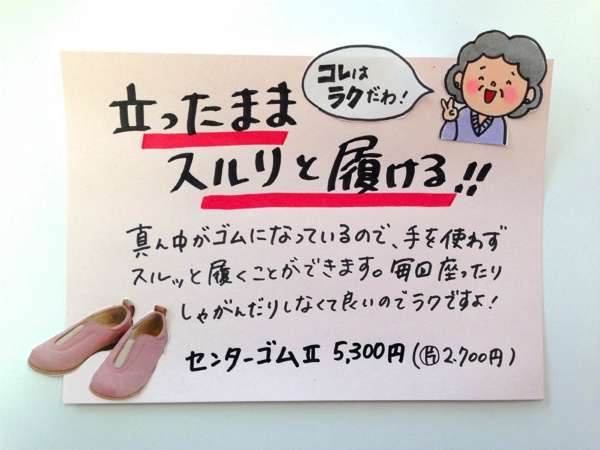 コレは
ラクだわ!
立ったまま
スルリと履ける!!
真ん中がゴムになっているので、手を使わず
スルッと履くことができます。毎回座ったり
しゃがんだりしなくて良いのでラクですよ!
センターゴムⅡ 5,300円(㊍2.700円)